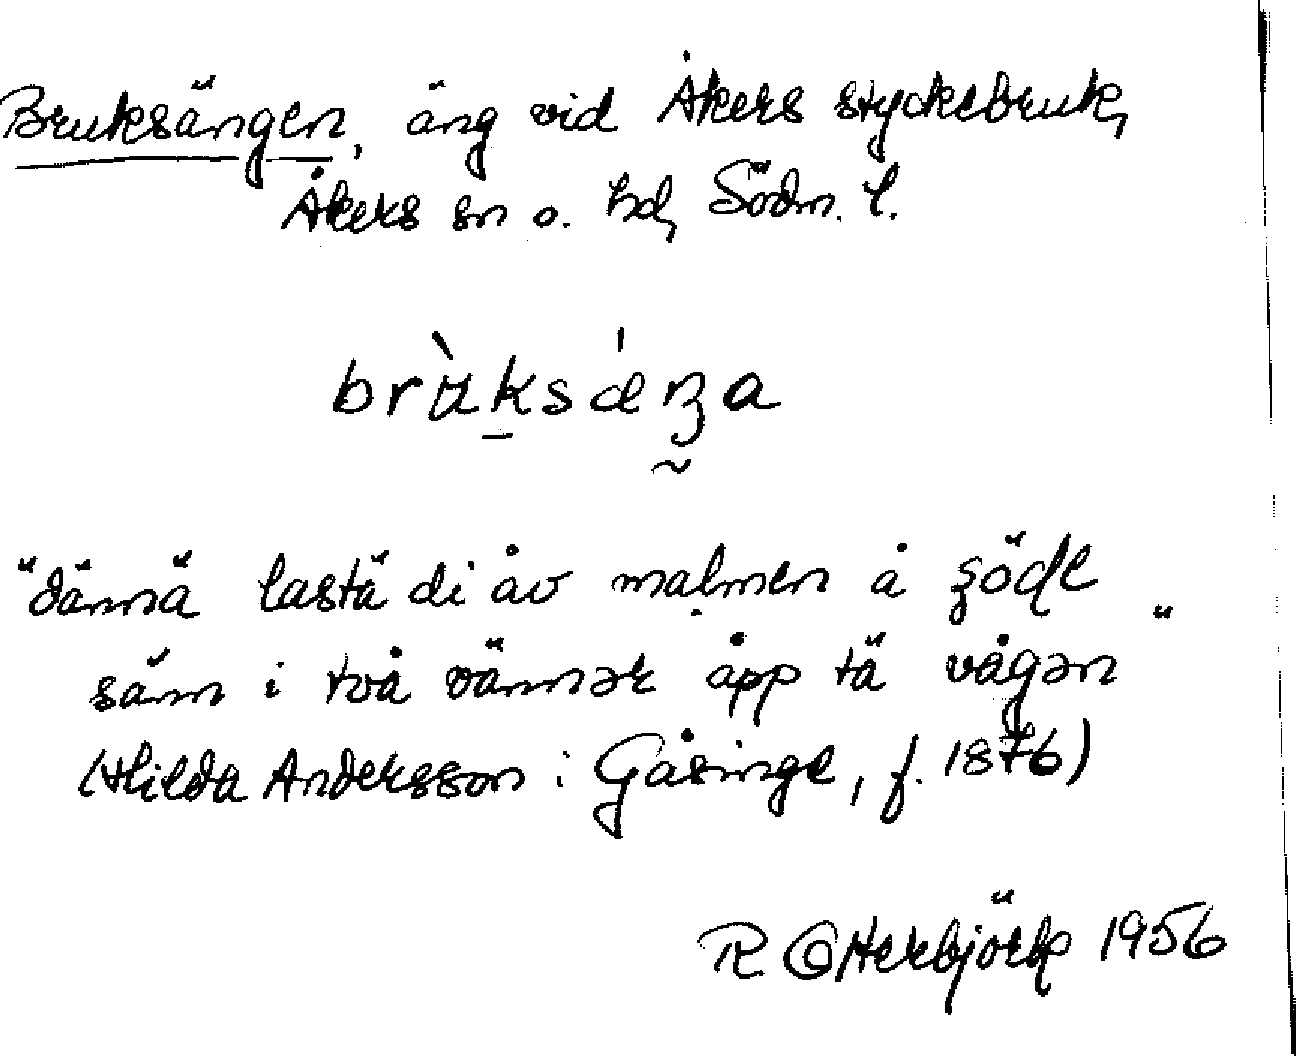 Bruksängen, äng vid Åkers styckebruk,
Åkers sn o. hd, Södm. l.
brʉ̀ksǽŋa
"dännä lastä di åv malmen å
säm i två vännər åpp tä vågən"
(Hilda Andersson i Gåsinge, f. 1876)
R Otterbjörk 1956